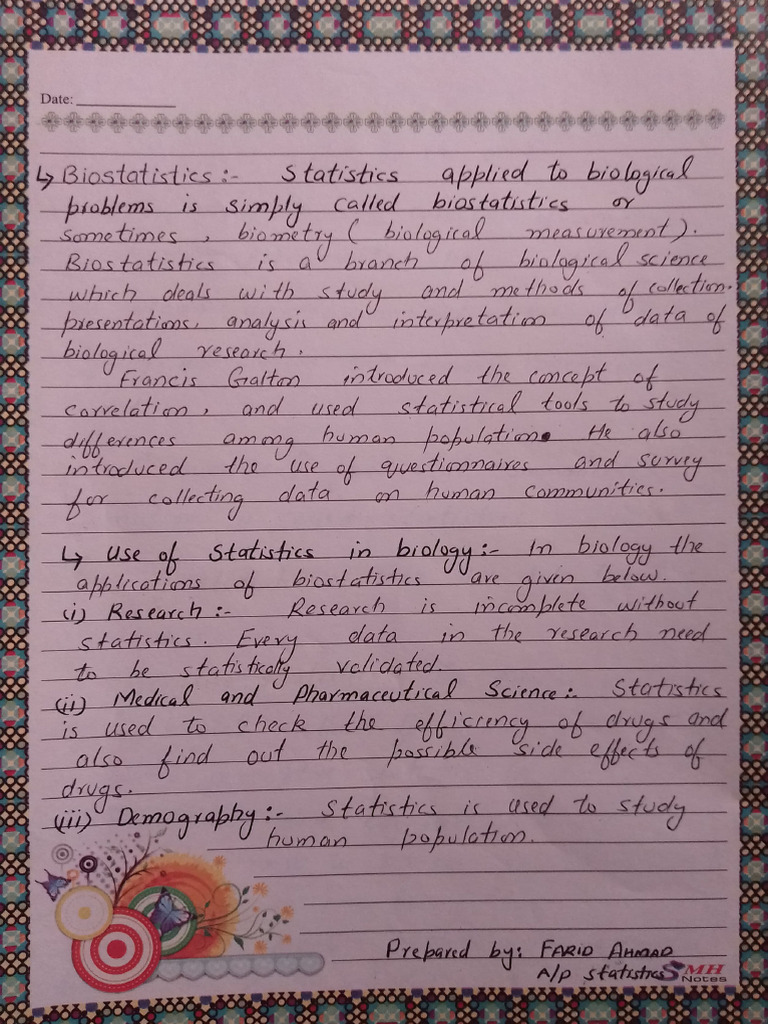 Date: ____________
↳ Biostatistics :- Statistics applied to biological
problems is simply called biostatistics or
sometimes, biometry ( biological measurement ).
Biostatistics is a branch of biological science
which deals with study and methods of collection.
presentations, analysis and interpretation of data of
biological research.
Francis Galton introduced the concept of
correlation, and used statistical tools to study
differences among human population. He also
introduced the use of questionnaires and survey
for collecting data on human communities.
↳ Use of Statistics in biology :- In biology the
applications of biostatistics are given below.
(i) Research :- Research is incomplete without
statistics. Every data in the research need
to be statistically validated.
(ii) Medical and Pharmaceutical Science :- Statistics
is used to check the efficiency of drugs and
also find out the possible side effects of
drugs.
(iii) Demography :- Statistics is used to study
human population.
Prepared by: FARID AHMAD
A/P Statistics
MH
Notes